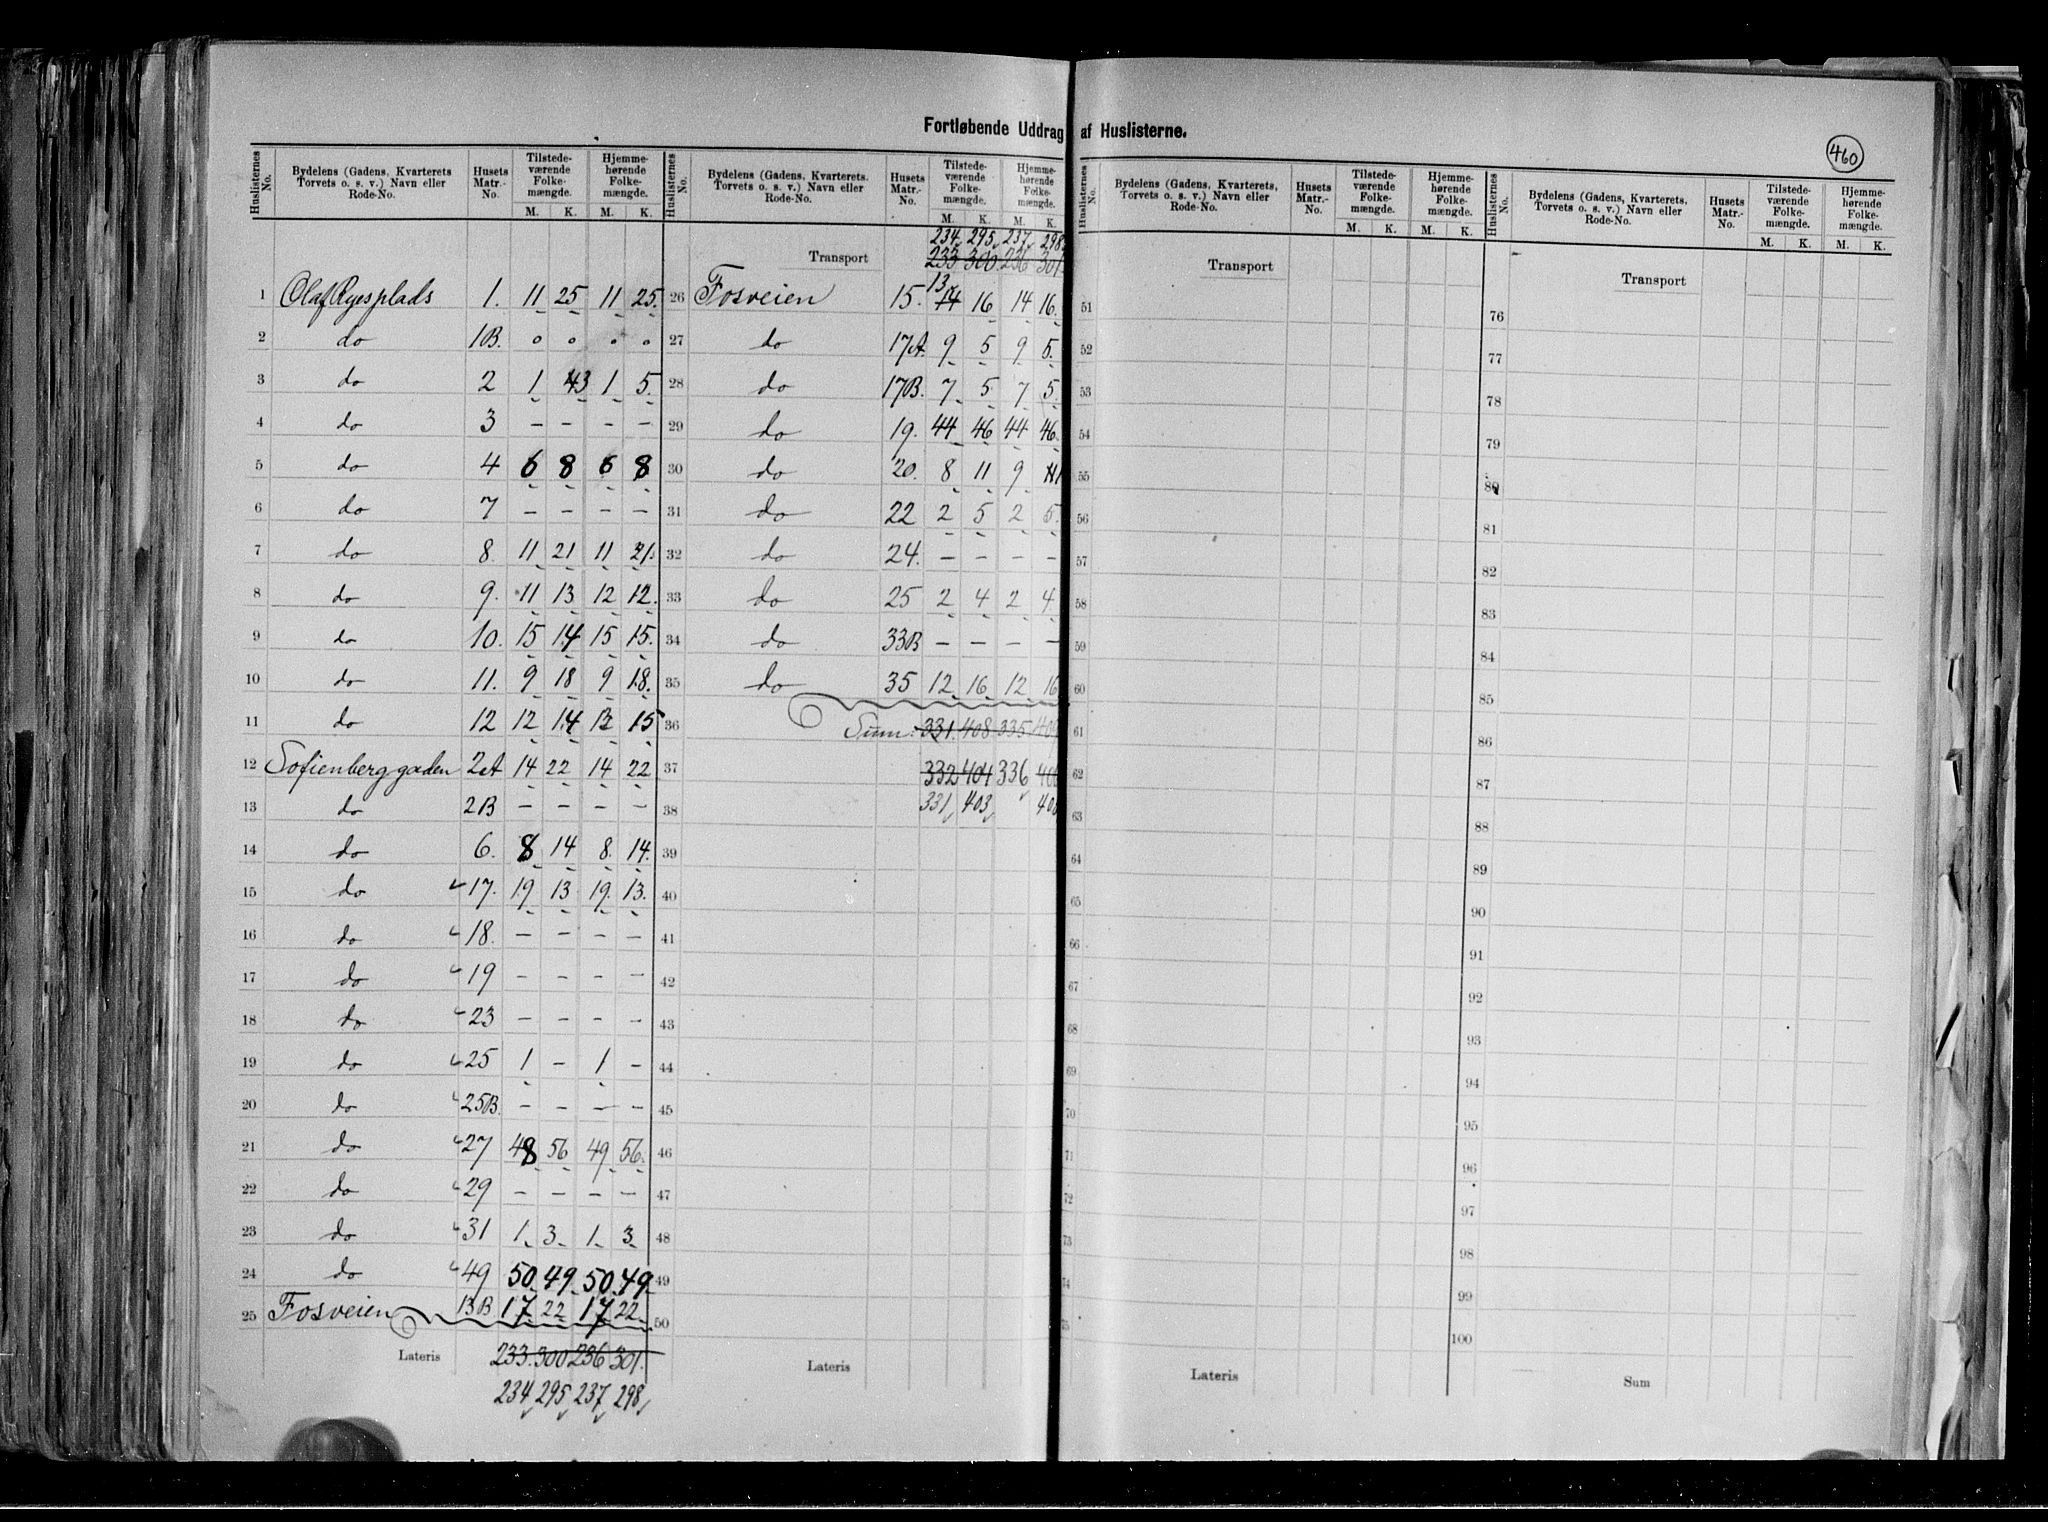 Fortløbende Uddrag af Huslisterne.
460
Huslisternes No. Bydelens (Gadens, Kvarterets Torvets o. s. v.) Navn eller Rode-No. Husets Matr.-No. Tilstedeværende Folkemængde. M. K. Hjemmehørende Folkemængde. M. K.
1 Olaf Ryes plads 1. 11 25 11 25.
2 do 1B. o o o o
3 do 2 1 3 1 5.
4 do 3 – – – –
5 do 4 6 8 6 8
6 do 7 – – – –
7 do 8. 11 21 11 21.
8 do 9. 11 13 12 12.
9 do 10. 15 14 15 15.
10 do 11. 9 18 9 18.
11 do 12 12 14 12 15
12 Sofienberggaden 2A 14 22 14 22
13 do 2B – – – –
14 do 6. 8 14 8. 14.
15 do 17. 19. 13 19. 13.
16 do 18. – – – –
17 do 19 – – – –
18 do 23 – – – –
19 do 25 1 – 1 –
20 do 25B. – – – –
21 do 27 48 56 49 56.
22 do 29 – – – –
23 do 31 1. 3. 1. 3.
24 do 49 50. 49. 50. 49.
25 Fosveien 13B 17 22 17 22.
Lateris 233. 300 236 301.
234 295 237 298
Huslisternes No. Bydelens (Gadens, Kvarterets. Torvets o. s. v.) Navn eller Rode-No. Husets Matr.-No. Tilstedeværende Folkemængde. M. K. Hjemmehørende Folkemængde. M. K.
234 295 237 298
Transport 233 300 236 301
13
26 Fosveien 15. 14 16 14 16.
27 do 17A. 9 5 9 5.
28 do 17B. 7 5 7 5.
29 do 19. 44 46 44 46.
30 do 20. 8 11 9 11
31 do 22 2 5 2 5.
32 do 24. – – – –
33 do 25 2 4 2 4
34 do 33B – – – –
35 do 35 12 16 12 16
36 Sum: 331. 408 335
37 332 404 336
38 331 403
39
40
41
42
43
44
45
46
47
48
49
50
Lateris
Huslisternes No. Bydelens (Gadens, Kvarterets, Torvets o. s. v.) Navn eller Rode-No. Husets Matr.-No. Tilstedeværende Folkemængde. M. K. Hjemmehørende Folkemængde. M. K.
Transport
51
52
53
54
55
56
57
58
59
60
61
62
63
64
65
66
67
68
69
70
71
72
73
74
75
Lateris
Huslisternes No. Bydelens (Gadens, Kvarterets, Torvets o. s. v.) Navn eller Rode-No. Husets Matr.-No. Tilstedeværende Folkemængde. M. K. Hjemmehørende Folkemængde. M. K.
Transport
76
77
78
79
80
81
82
83
84
85
86
87
88
89
90
91
92
93
94
95
96
97
98
99
100
Sum